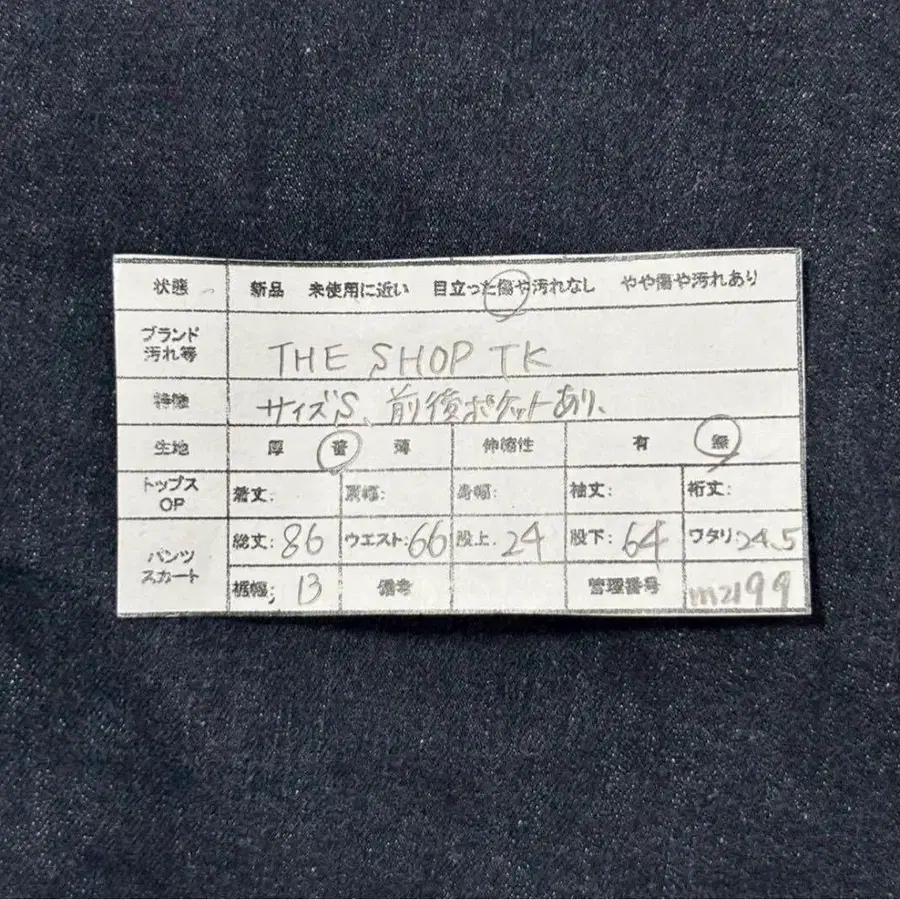 状態 新品 未使用に近い 目立った傷や汚れなし やや傷や汚れあり
ブランド
汚れ等
THE SHOP TK
特徴 サイズS、前後ポケットあり、
生地 厚 普 薄 伸縮性 有 無
トップス
OP
着丈: 肩幅: 身幅: 袖丈: 裄丈:
パンツ
スカート
総丈:86 ウエスト:66 股上:24 股下:64 ワタリ:24.5
裾幅:13 備考 管理番号 m2199